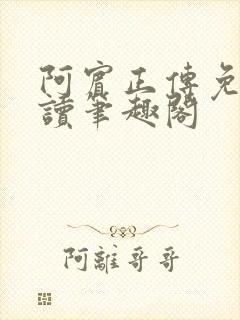 阿賓正傳免
讀筆趣閣
阿離哥哥